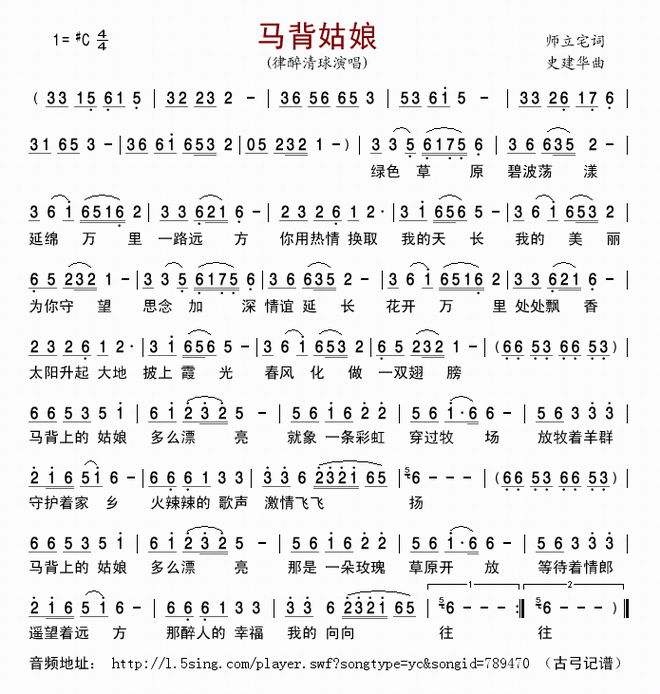 马背姑娘
1=♯C 4/4
(律醉清球演唱)
师立宅词
史建华曲
( 33 15 61 5 | 32 23 2 - | 36 56 65 3 | 53 61 5 - | 33 26 17 6 |
31 65 3 - | 36 61 653 2 | 05 232 1 - ) | 3 35 6175 6 | 36 635 2 - |
绿色 草 原 碧波荡 漾
3 61 6516 2 | 3 3 621 6 - | 2 3 2 6 1 2· | 3 1 656 5 - | 3 61 653 2 |
延绵 万 里 一路远 方 你用热情 换取 我的天 长 我的 美 丽
6 5 232 1 - | 3 35 6175 6 | 36 635 2 - | 3 61 6516 2 | 33 621 6 - |
为你守 望 思念 加 深 情谊 延 长 花开 万 里 处处飘 香
2 3 2 6 1 2· | 3 1 656 5 - | 3 61 653 2 | 6 5 232 1 - | (66 53 66 53) |
太阳升起 大地 披上 霞 光 春风 化 做 一双翅 膀
6 6 5 3 5 1 | 6 1 232 5 - | 5 6 1 6 2 2 | 5 6 1·6 6 - | 5 6 3 3 3 |
马背上的 姑娘 多么漂 亮 就象 一条彩虹 穿过牧 场 放牧着羊群
2 1 6 51 6 - | 6 6 6 1 3 3 | 3 3 6 2321 65 | 5 6 - - - | (66 53 66 53) |
守护着家 乡 火辣辣的 歌声 激情飞飞 扬
6 6 5 3 5 1 | 6 1 232 5 - | 5 6 1 6 2 2 | 5 6 1·6 6 - | 5 6 3 3 3 |
马背上的 姑娘 多么漂 亮 那是 一朵玫瑰 草原开 放 等待着情郎
1 2
2 1 6 51 6 - | 6 6 6 1 3 3 | 3 3 6 2321 65 | 5 6 - - :| 5 6 - - ) ‖
遥望着远 方 那醉人的 幸福 我的 向向 往 往
音频地址: http://l.5sing.com/player.swf?songtype=yc&songid=789470 (古弓记谱)